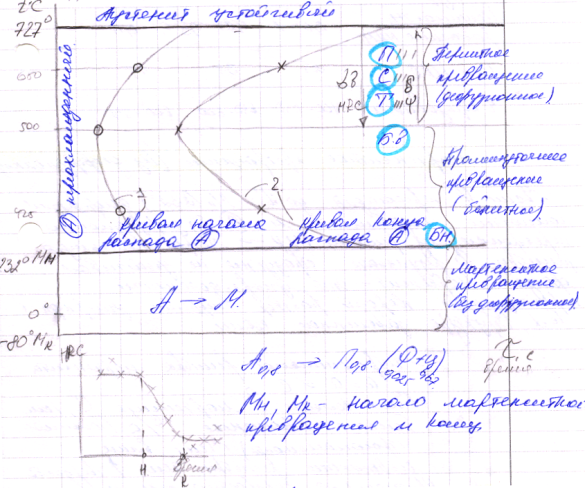 t°C
Аустенит устойчивый
727°
650
500
425
232° Мн
0°
-80° Мк
А переохлажденный
П
С
Т
HRC
Бв
Бн
Перлитное
превращение
(диффузионное)
Промежуточное
превращение
(бейнитное)
Мартенситное
превращение
(бездиффузионное)
1
2
кривая начала
распада А
кривая конца
распада А
А → М
τ, с
время
HRC
Н
К
время
А0,8 → П0,8 (Ф+Ц)
0,025 6,67
Мн, Мк - начало мартенситного
превращения и конец